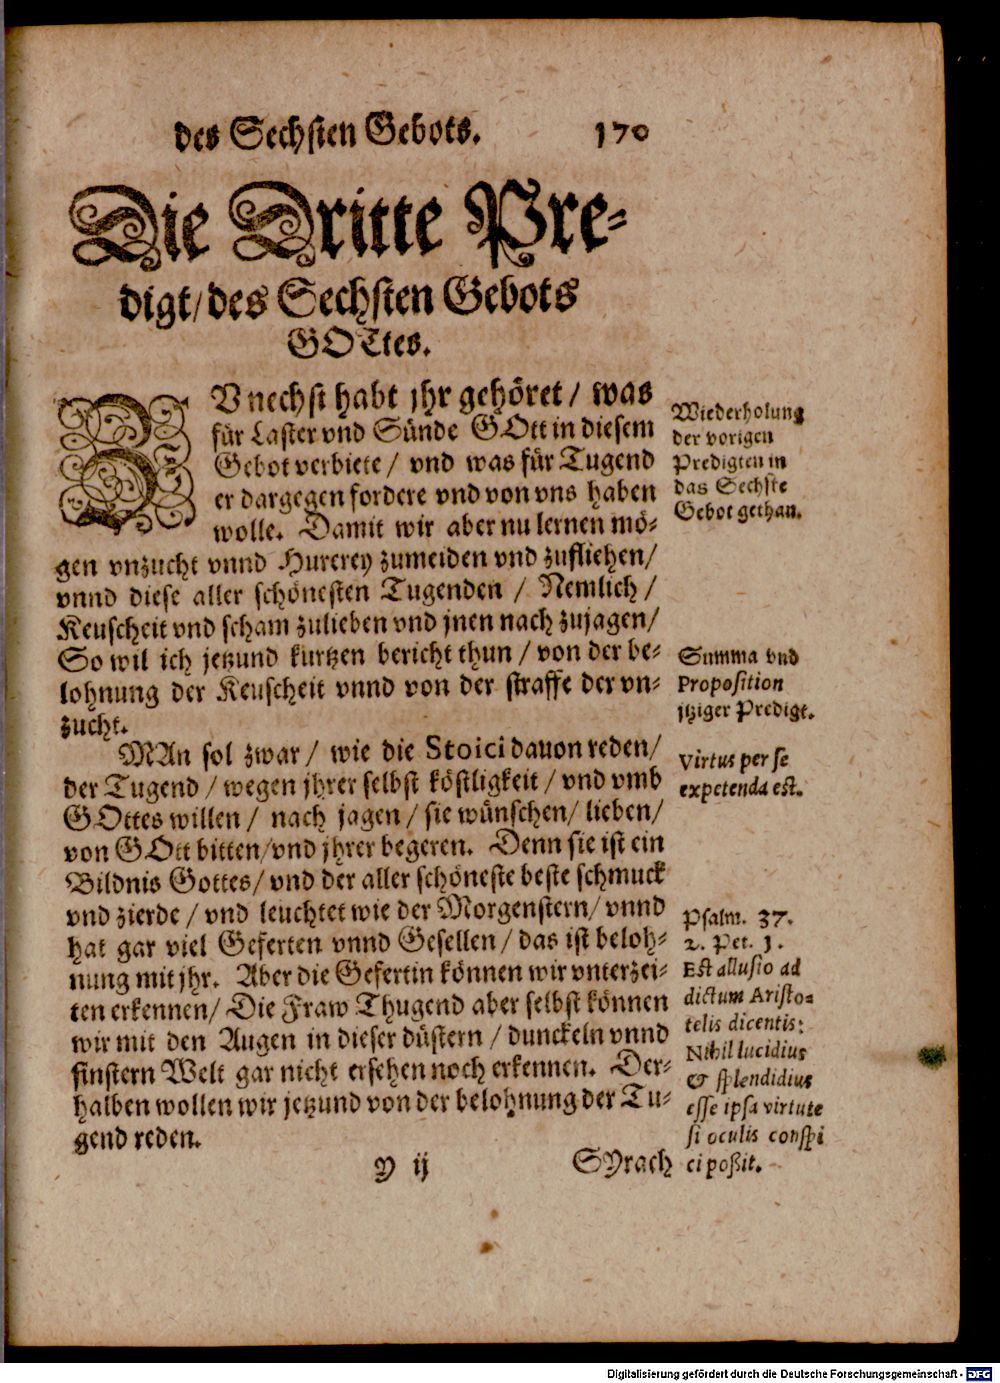 des Sechsten Gebots. 170
Die Dritte Pre-
digt/ des Sechsten Gebots
GOTtes.
ZVnechst habt jhr gehöret / was
für Laster vnd Sünde GOtt in diesem
Gebot verbiete / vnd was für Tugend
er dargegen fordere vnd von vns haben
wolle. Damit wir aber nu lernen mö-
gen vnzucht vnnd Hurerey zumeiden vnd zufliehen/
vnnd diese aller schönesten Tugenden / Nemlich /
Keuscheit vnd scham zulieben vnd jnen nach zujagen/
So wil ich jetzund kurtzen bericht thun / von der be-
lohnung der Keuscheit vnnd von der straffe der vn-
zucht.
MAn sol zwar / wie die Stoici dauon reden/
der Tugend / wegen jhrer selbst köstligkeit / vnd vmb
GOttes willen / nach jagen / sie wünschen/ lieben/
von GOtt bitten/vnd jhrer begeren. Denn sie ist ein
Bildnis Gottes/ vnd der aller schöneste beste schmuck
vnd zierde / vnd leuchtet wie der Morgenstern/ vnnd
hat gar viel Geferten vnnd Gesellen / das ist beloh-
nung mit jhr. Aber die Gefertin können wir vnterzei-
ten erkennen/ Die Fraw Thugend aber selbst können
wir mit den Augen in dieser düstern / dunckeln vnnd
finstern Welt gar nicht ersehen noch erkennen. Der-
halben wollen wir jetzund von der belohnung der Tu-
gend reden.
y ij SYrach
Wiederholung
der vorigen
Predigten in
das Sechste
Gebot gethan.
Summa vnd
Proposition
jtziger Predigt.
Virtus per se
expetenda est.
Psalm. 37.
2. Pet. 1.
Est allusio ad
dictum Aristo-
telis dicentis:
Nihil lucidius
& splendidius
esse ipsa virtute
si oculis conspi
ci poßit.
Digitalisierung gefördert durch die Deutsche Forschungsgemeinschaft - DFG